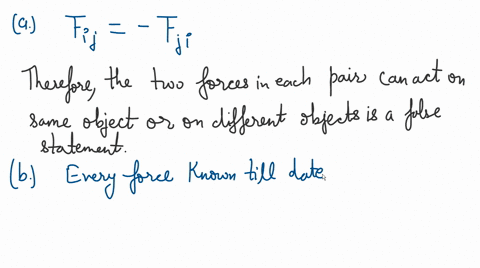 (a.) F_ij = - F_ji
Therefore, the two forces in each pair can act on
same object or on different objects is a false
statement.
(b.) Every force known till date